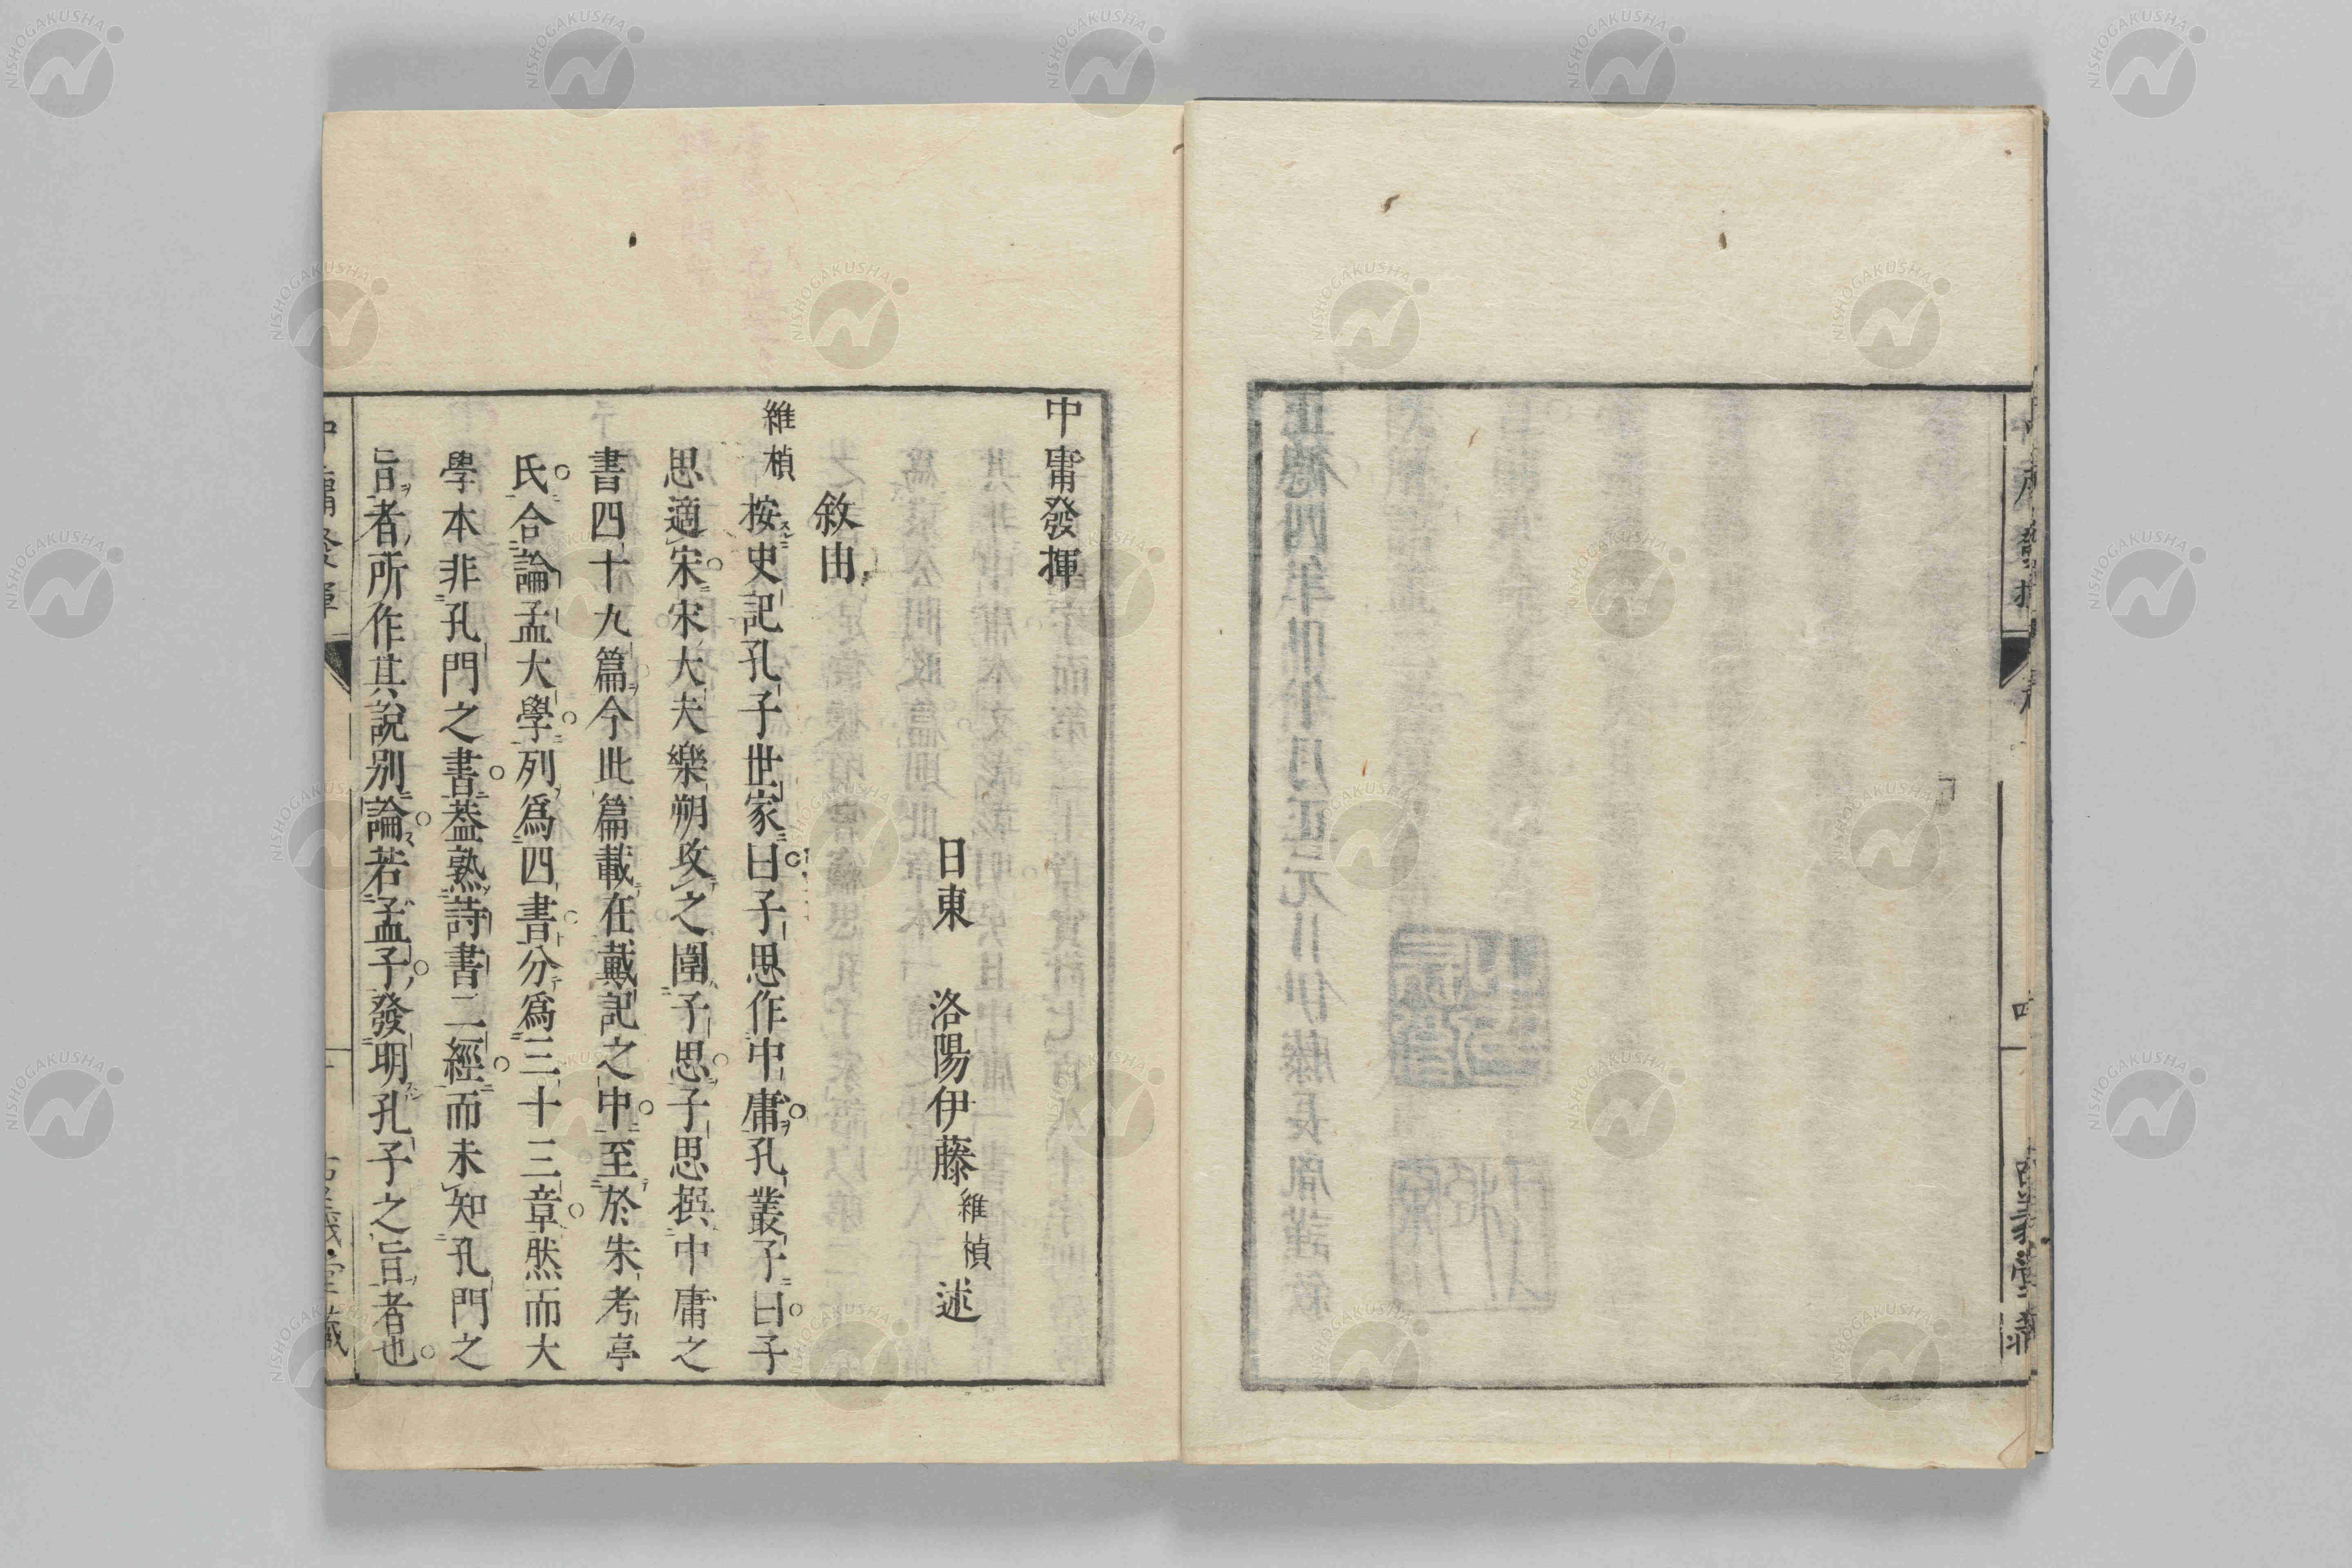 中庸發揮
日東　洛陽伊藤維楨述
敘由
維楨按史記孔子世家曰子思作中庸孔叢子曰子
思適宋宋大夫樂朔攻之圍子思子思撰中庸之
書四十九篇今此篇載在戴記之中至於朱考亭
氏合論孟大學列爲四書分爲三十三章然而大
學本非孔門之書葢熟詩書二經而未知孔門之
旨者所作其說別論若孟子發明孔子之旨者也